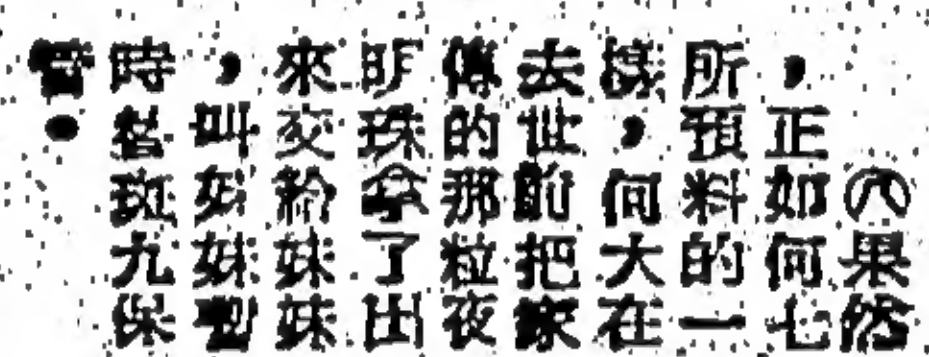 ㊅果然
，正如何七
所預料的一
樣，何大在
去世前把家
傳的那粒夜
明珠拿了出
來交給妹妹
，叫妹妹到
時替斑九保
管。